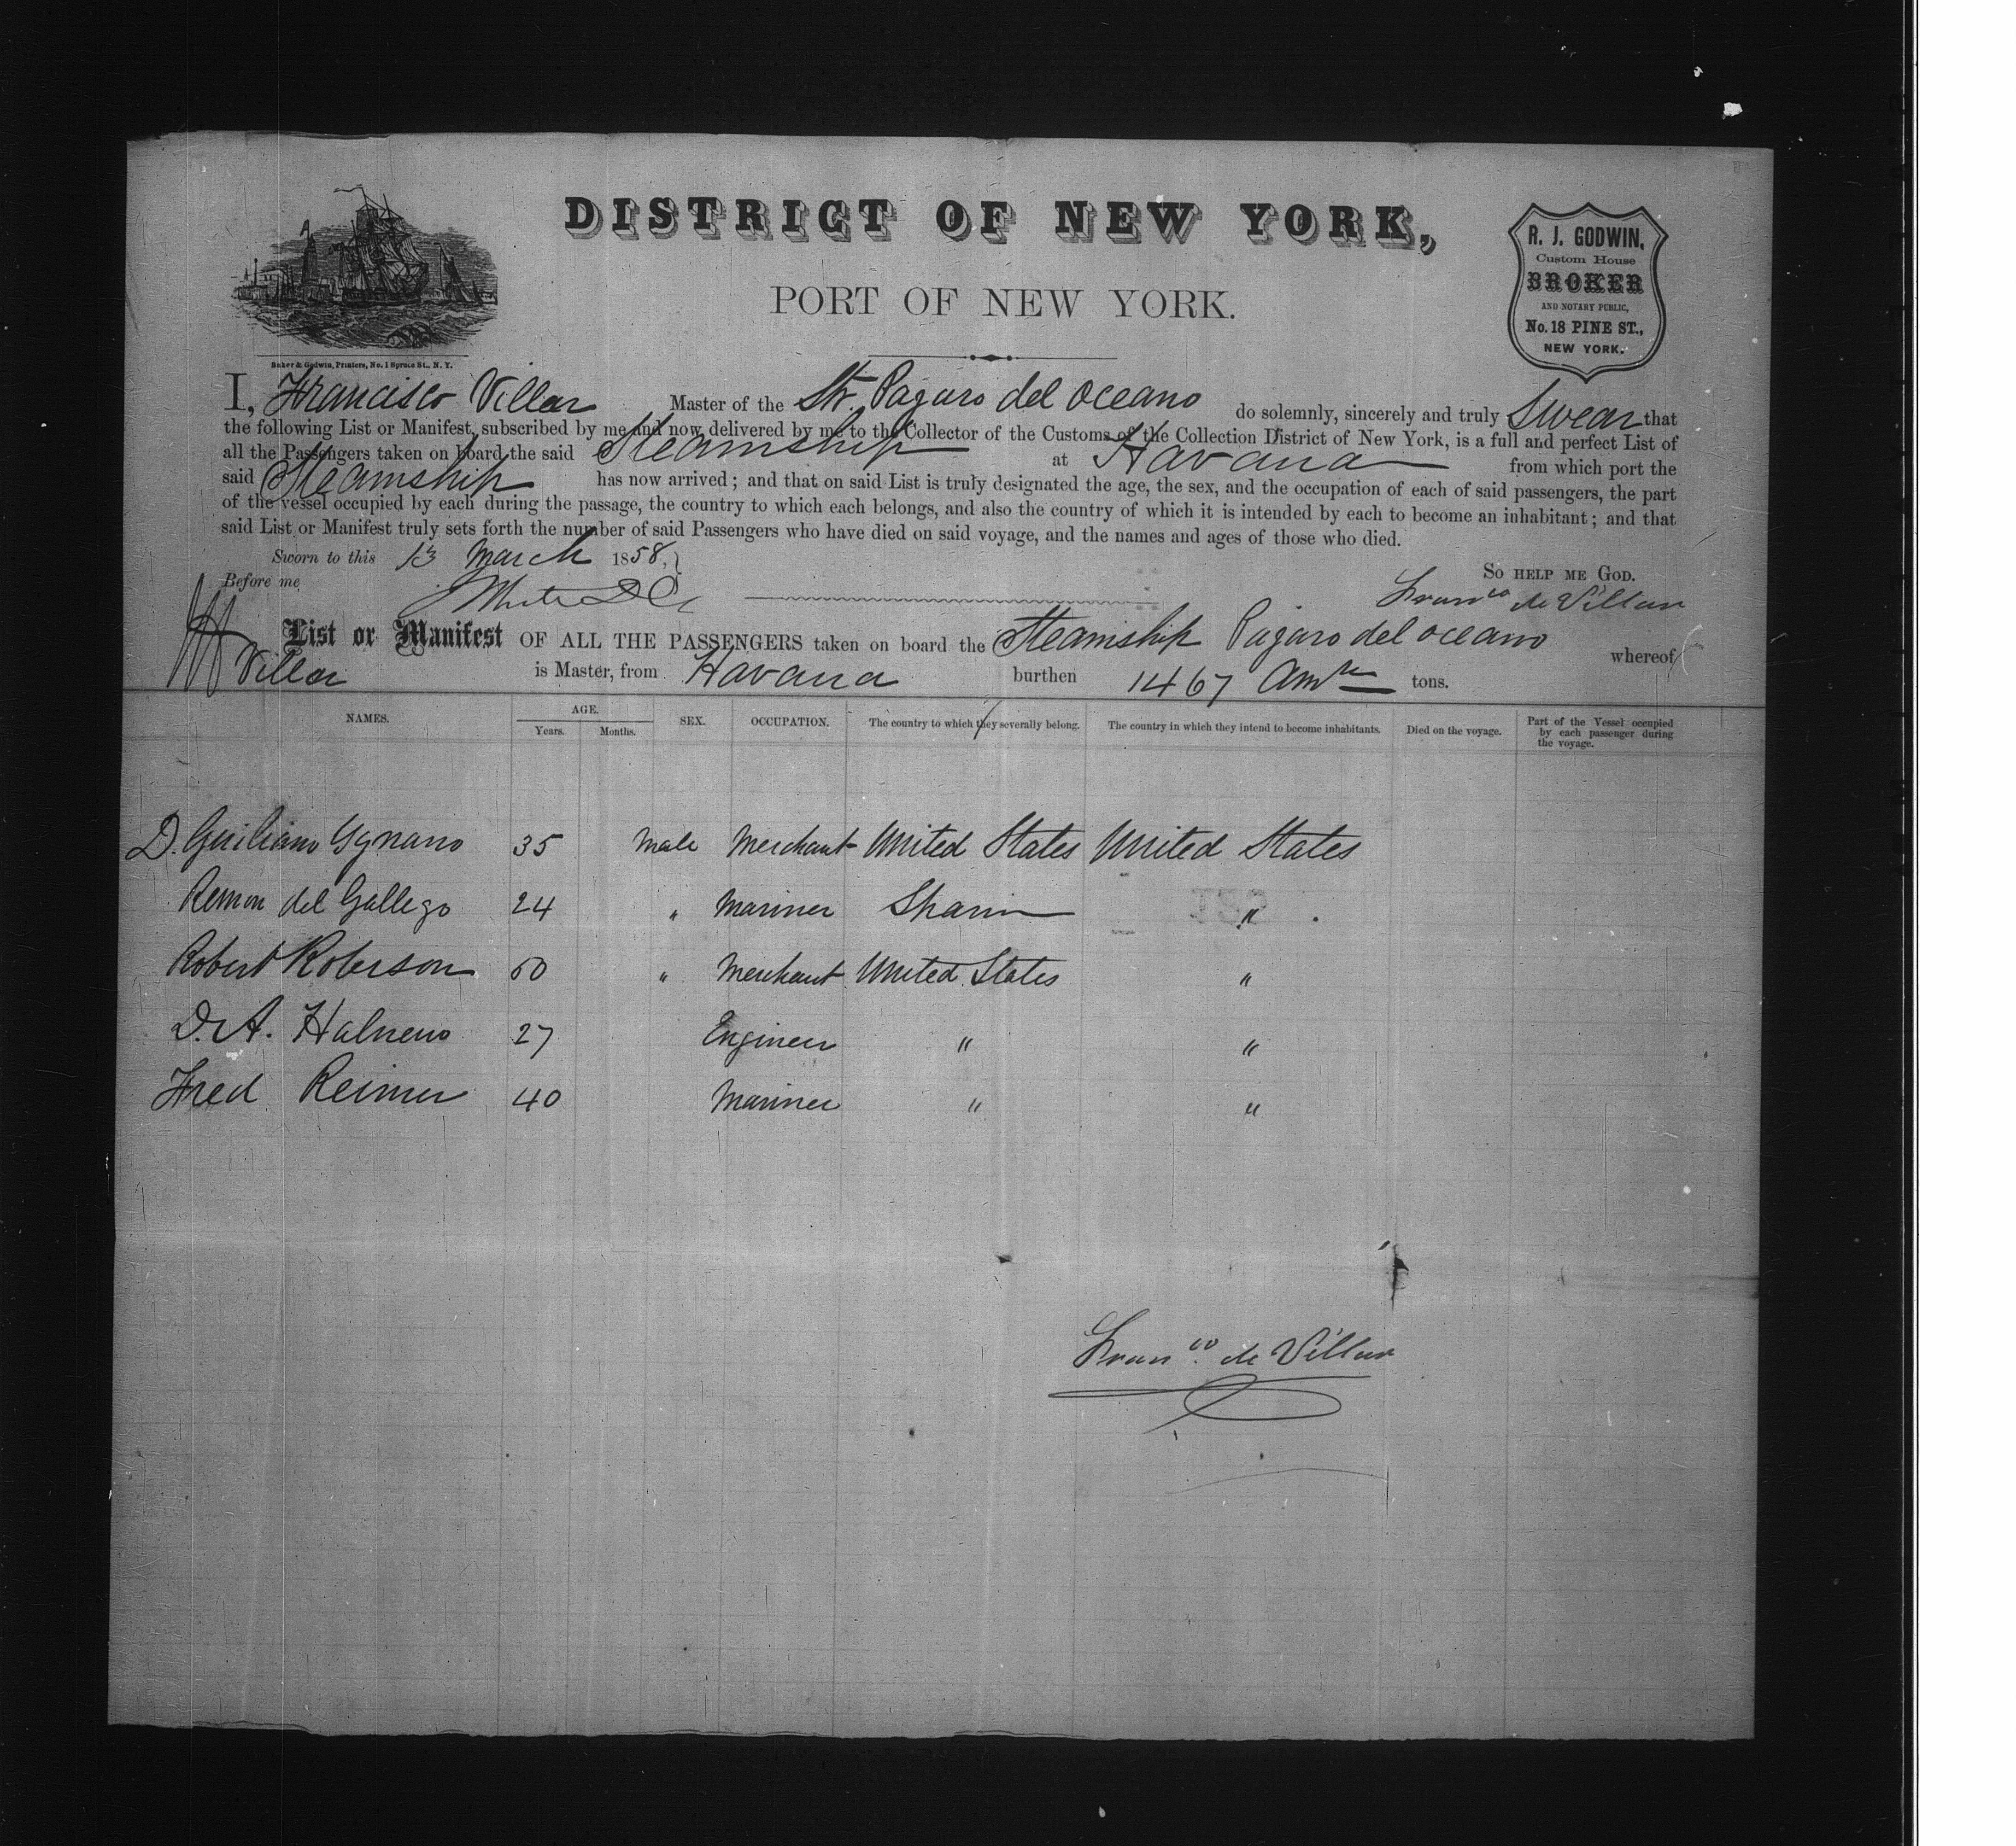 DISTRICT OF NEW YORK,
PORT OF NEW YORK.
R. J. GODWIN,
Custom House
BROKER
AND NOTARY PUBLIC,
No. 18 PINE ST.,
NEW YORK.
Baker & Godwin, Printers, No. 1 Spruce St., N. Y.
I, Francisco Villar Master of the Str. Pagaro del Oceano do solemnly, sincerely and truly Swear that
the following List or Manifest, subscribed by me and now delivered by me to the Collector of the Customs of the Collection District of New York, is a full and perfect List of
all the Passengers taken on board the said Steamship at Havana from which port the
said Steamship has now arrived; and that on said List is truly designated the age, the sex, and the occupation of each of said passengers, the part
of the vessel occupied by each during the passage, the country to which each belongs, and also the country of which it is intended by each to become an inhabitant; and that
said List or Manifest truly sets forth the number of said Passengers who have died on said voyage, and the names and ages of those who died.
Sworn to this 13 March 1858,
So help me God.
Before me
Franco de Villar
List or Manifest OF ALL THE PASSENGERS taken on board the Steamship Pagaro del oceano whereof
Villar is Master, from Havana burthen 1467 tons.
NAMES. AGE. Years. Months. SEX. OCCUPATION. The country to which they severally belong. The country in which they intend to become inhabitants. Died on the voyage. Part of the Vessel occupied by each passenger during the voyage.
D. Guiliano 35 Male Merchant United States United States
Remon del Gallego 24 " Mariner "
Robert Roberson " Merchant United States "
D. A. 27 Engineer " "
Fred Reimer 40 Mariner " "
Franco de Villar